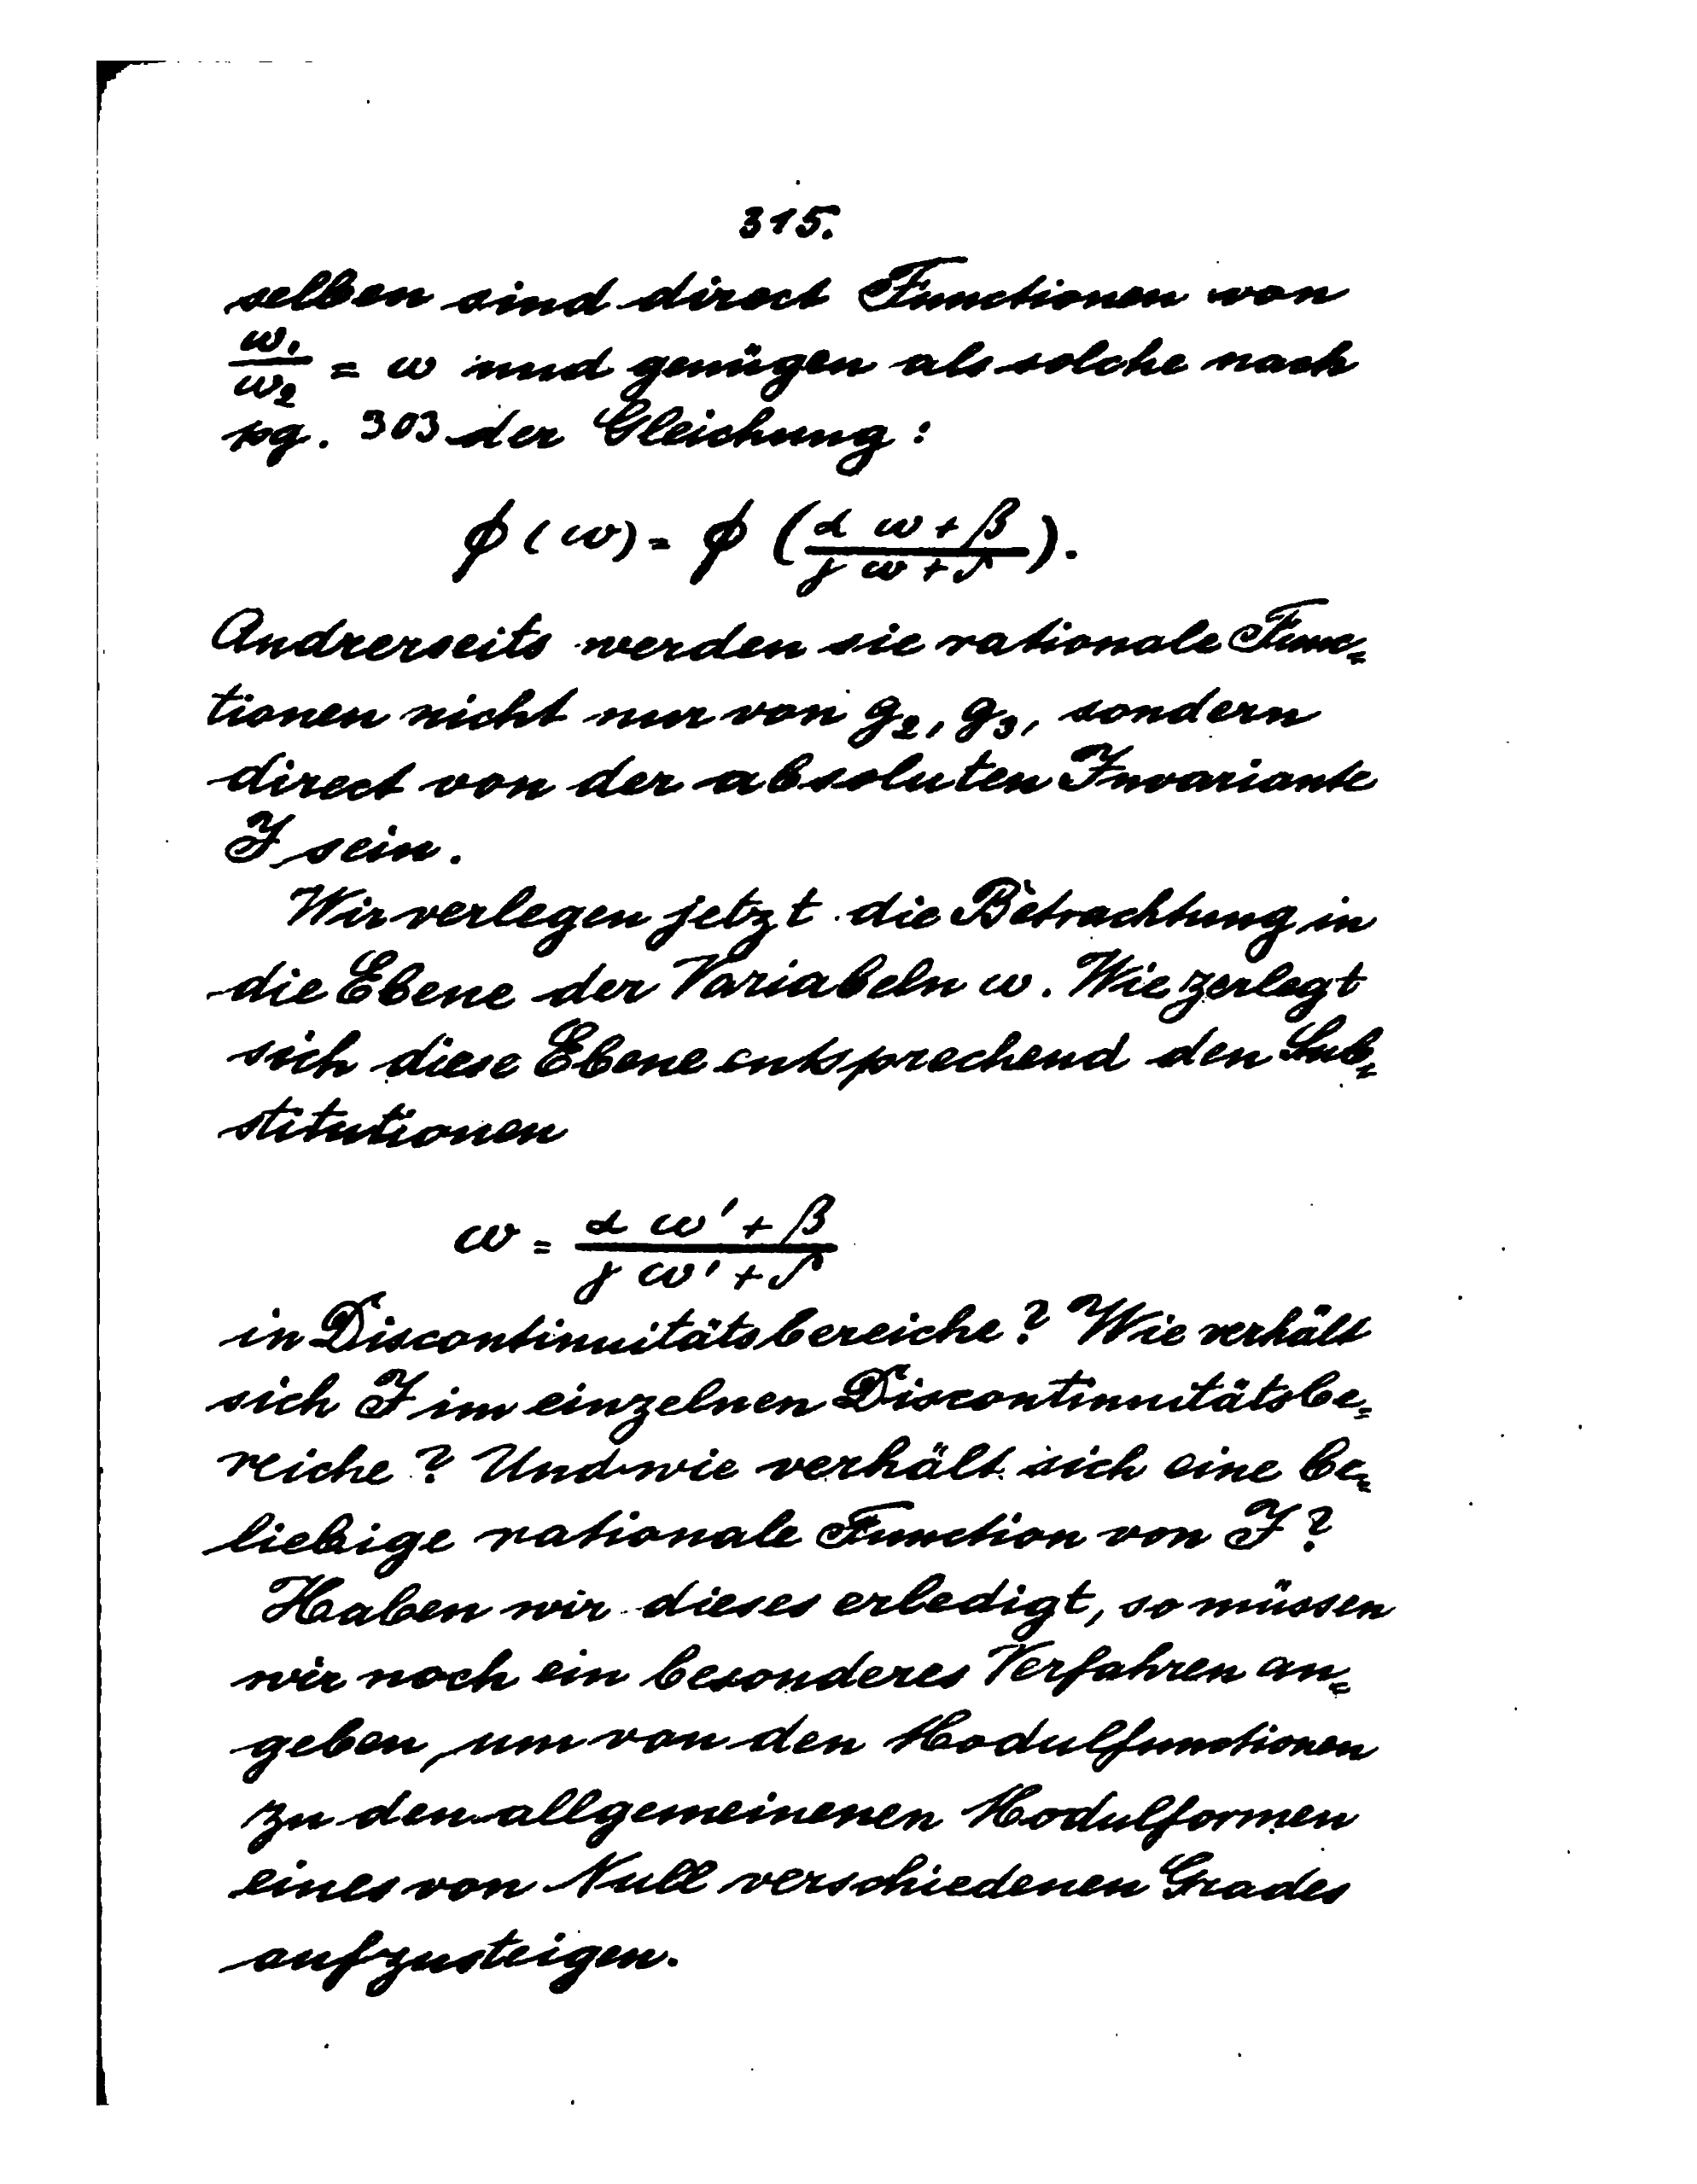 315.
selben sind direct Functionen von
ω₁/ω₂ = ω und genügen als solche nach
pg. 303 der Gleichung:
ϕ(ω) = ϕ((αω+β)/(γω+δ)).
Andrerseits werden sie rationale Func=
tionen nicht nur von g₂, g₃, sondern
direct von der absoluten Invariante
J sein.
Wir verlegen jetzt die Betrachtung in
die Ebene der Variabeln ω. Wie zerlegt
sich diese Ebene entsprechend den Sub=
stitutionen
ω = (αω'+β)/(γω'+δ)
in Discontinuitätsbereiche? Wie verhält
sich J im einzelnen Discontinuitätsbe=
reiche? Und wie verhält sich eine be=
liebige rationale Function von J?
Haben wir dieses erledigt, so müssen
wir noch ein besonderes Verfahren an=
geben, um von den Modulfunctionen
zu den allgemeinenen Modulformen
eines von Null verschiedenen Grades
aufzusteigen.